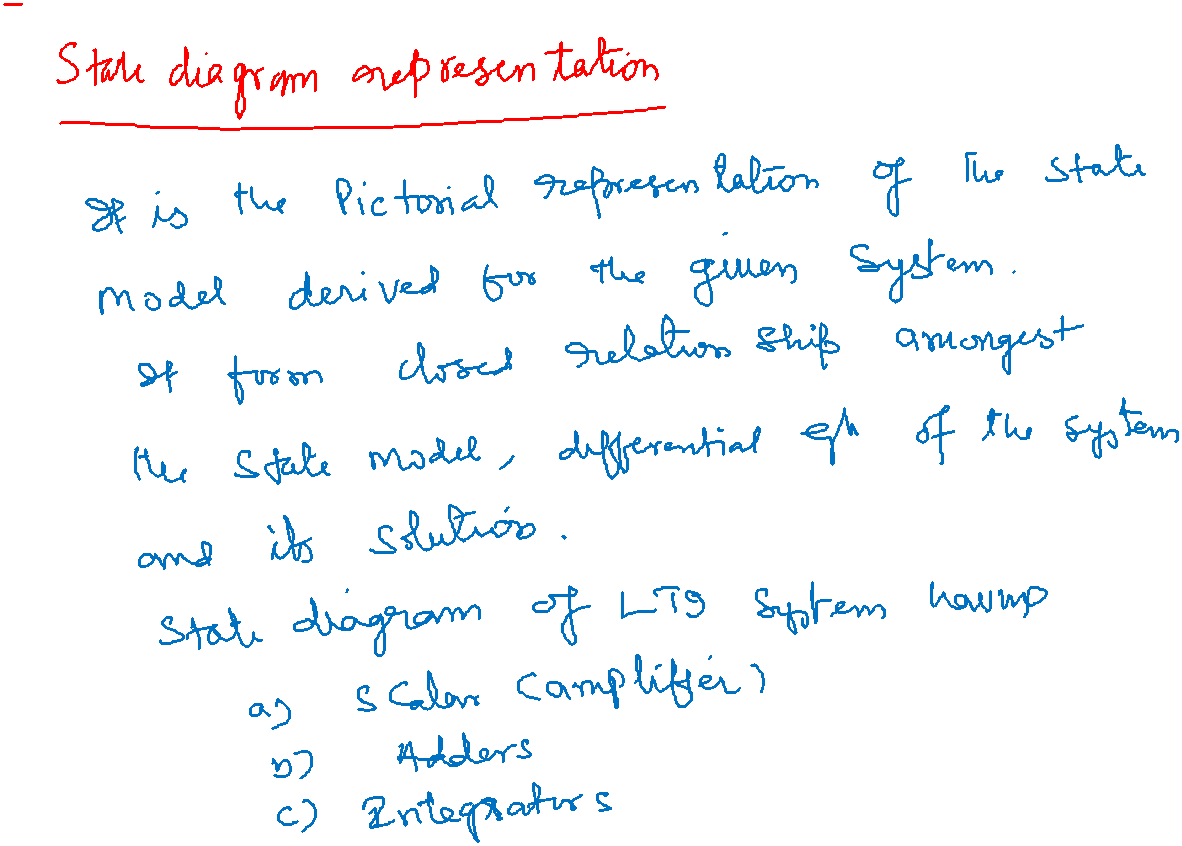 State diagram representation
It is the Pictorial representation of The state
model derived for the given System.
It form closed relation ship amongest
the state model, differential eqn of the system
and its solution.
State diagram of LTI System having
a) Scalar (amplifier)
b) Adders
c) Integrators